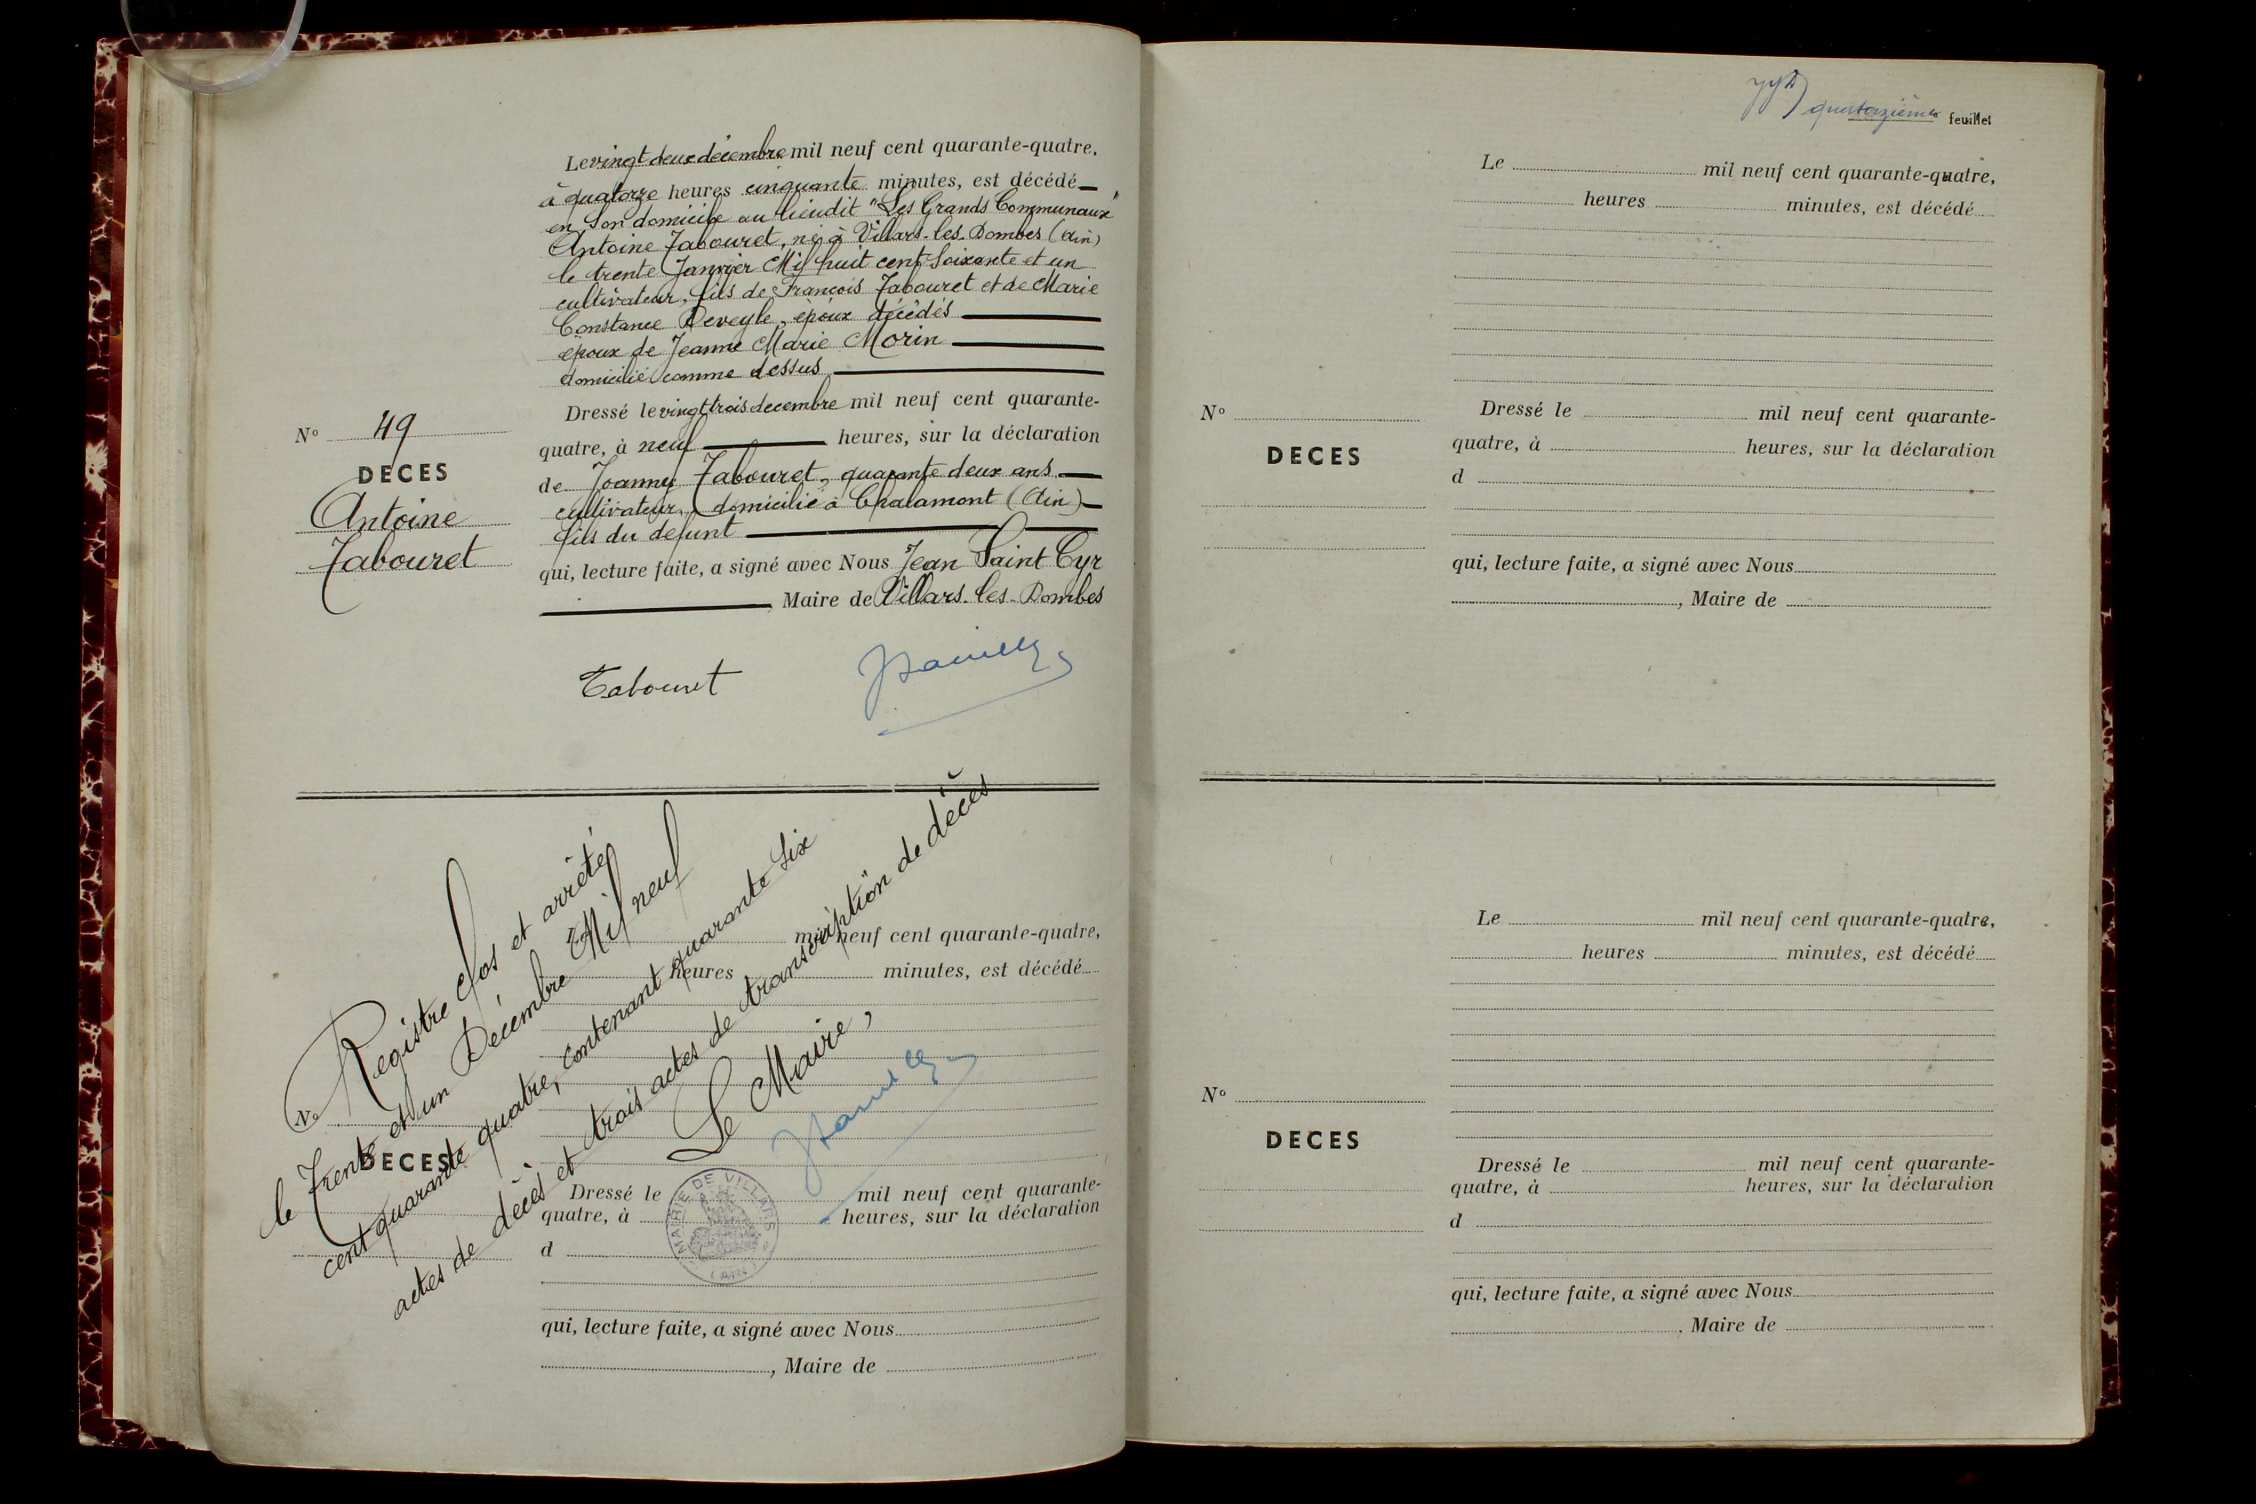 Le vingt deux décembre mil neuf cent quarante-quatre.
à quatorze heures cinquante minutes, est décédé
en son domicile au lieudit "Les Grands Communaux"
Antoine Tabouret, né à Villars-les-Dombes (Ain)
le trente Janvier Mil huit cent soixante et un
cultivateur, fils de François Tabouret et de Marie
Constance Deveyle, époux décédés
époux de Jeanne Marie Morin
domicilié comme dessus
Dressé le vingt trois decembre mil neuf cent quarante-
quatre, à neuf heures, sur la déclaration
de Joanny Tabouret, quarante deux ans
cultivateur, domicilié à Chalamont (Ain)
fils du defunt
qui, lecture faite, a signé avec Nous Jean Saint Cyr
Maire de Villars-les-Dombes
Nº 49
DECES
Antoine
Tabouret
Tabouret
Registre clos et arrêté
le Trente et un Décembre Mil neuf
cent quarante quatre, contenant quarante six
actes de décès et trois actes de transcription de décès
Le Maire,
mil neuf cent quarante-quatre,
heures minutes, est décédé
Nº
DECES
Dressé le mil neuf cent quarante-
quatre, à heures, sur la déclaration
d
qui, lecture faite, a signé avec Nous
, Maire de
MAIRIE DE VILLARS
(AIN)
feuillet
Le mil neuf cent quarante-quatre,
heures minutes, est décédé
Nº
DECES
Dressé le mil neuf cent quarante-
quatre, à heures, sur la déclaration
d
qui, lecture faite, a signé avec Nous
, Maire de
Le mil neuf cent quarante-quatre,
heures minutes, est décédé
Nº
DECES
Dressé le mil neuf cent quarante-
quatre, à heures, sur la déclaration
d
qui, lecture faite, a signé avec Nous
. Maire de